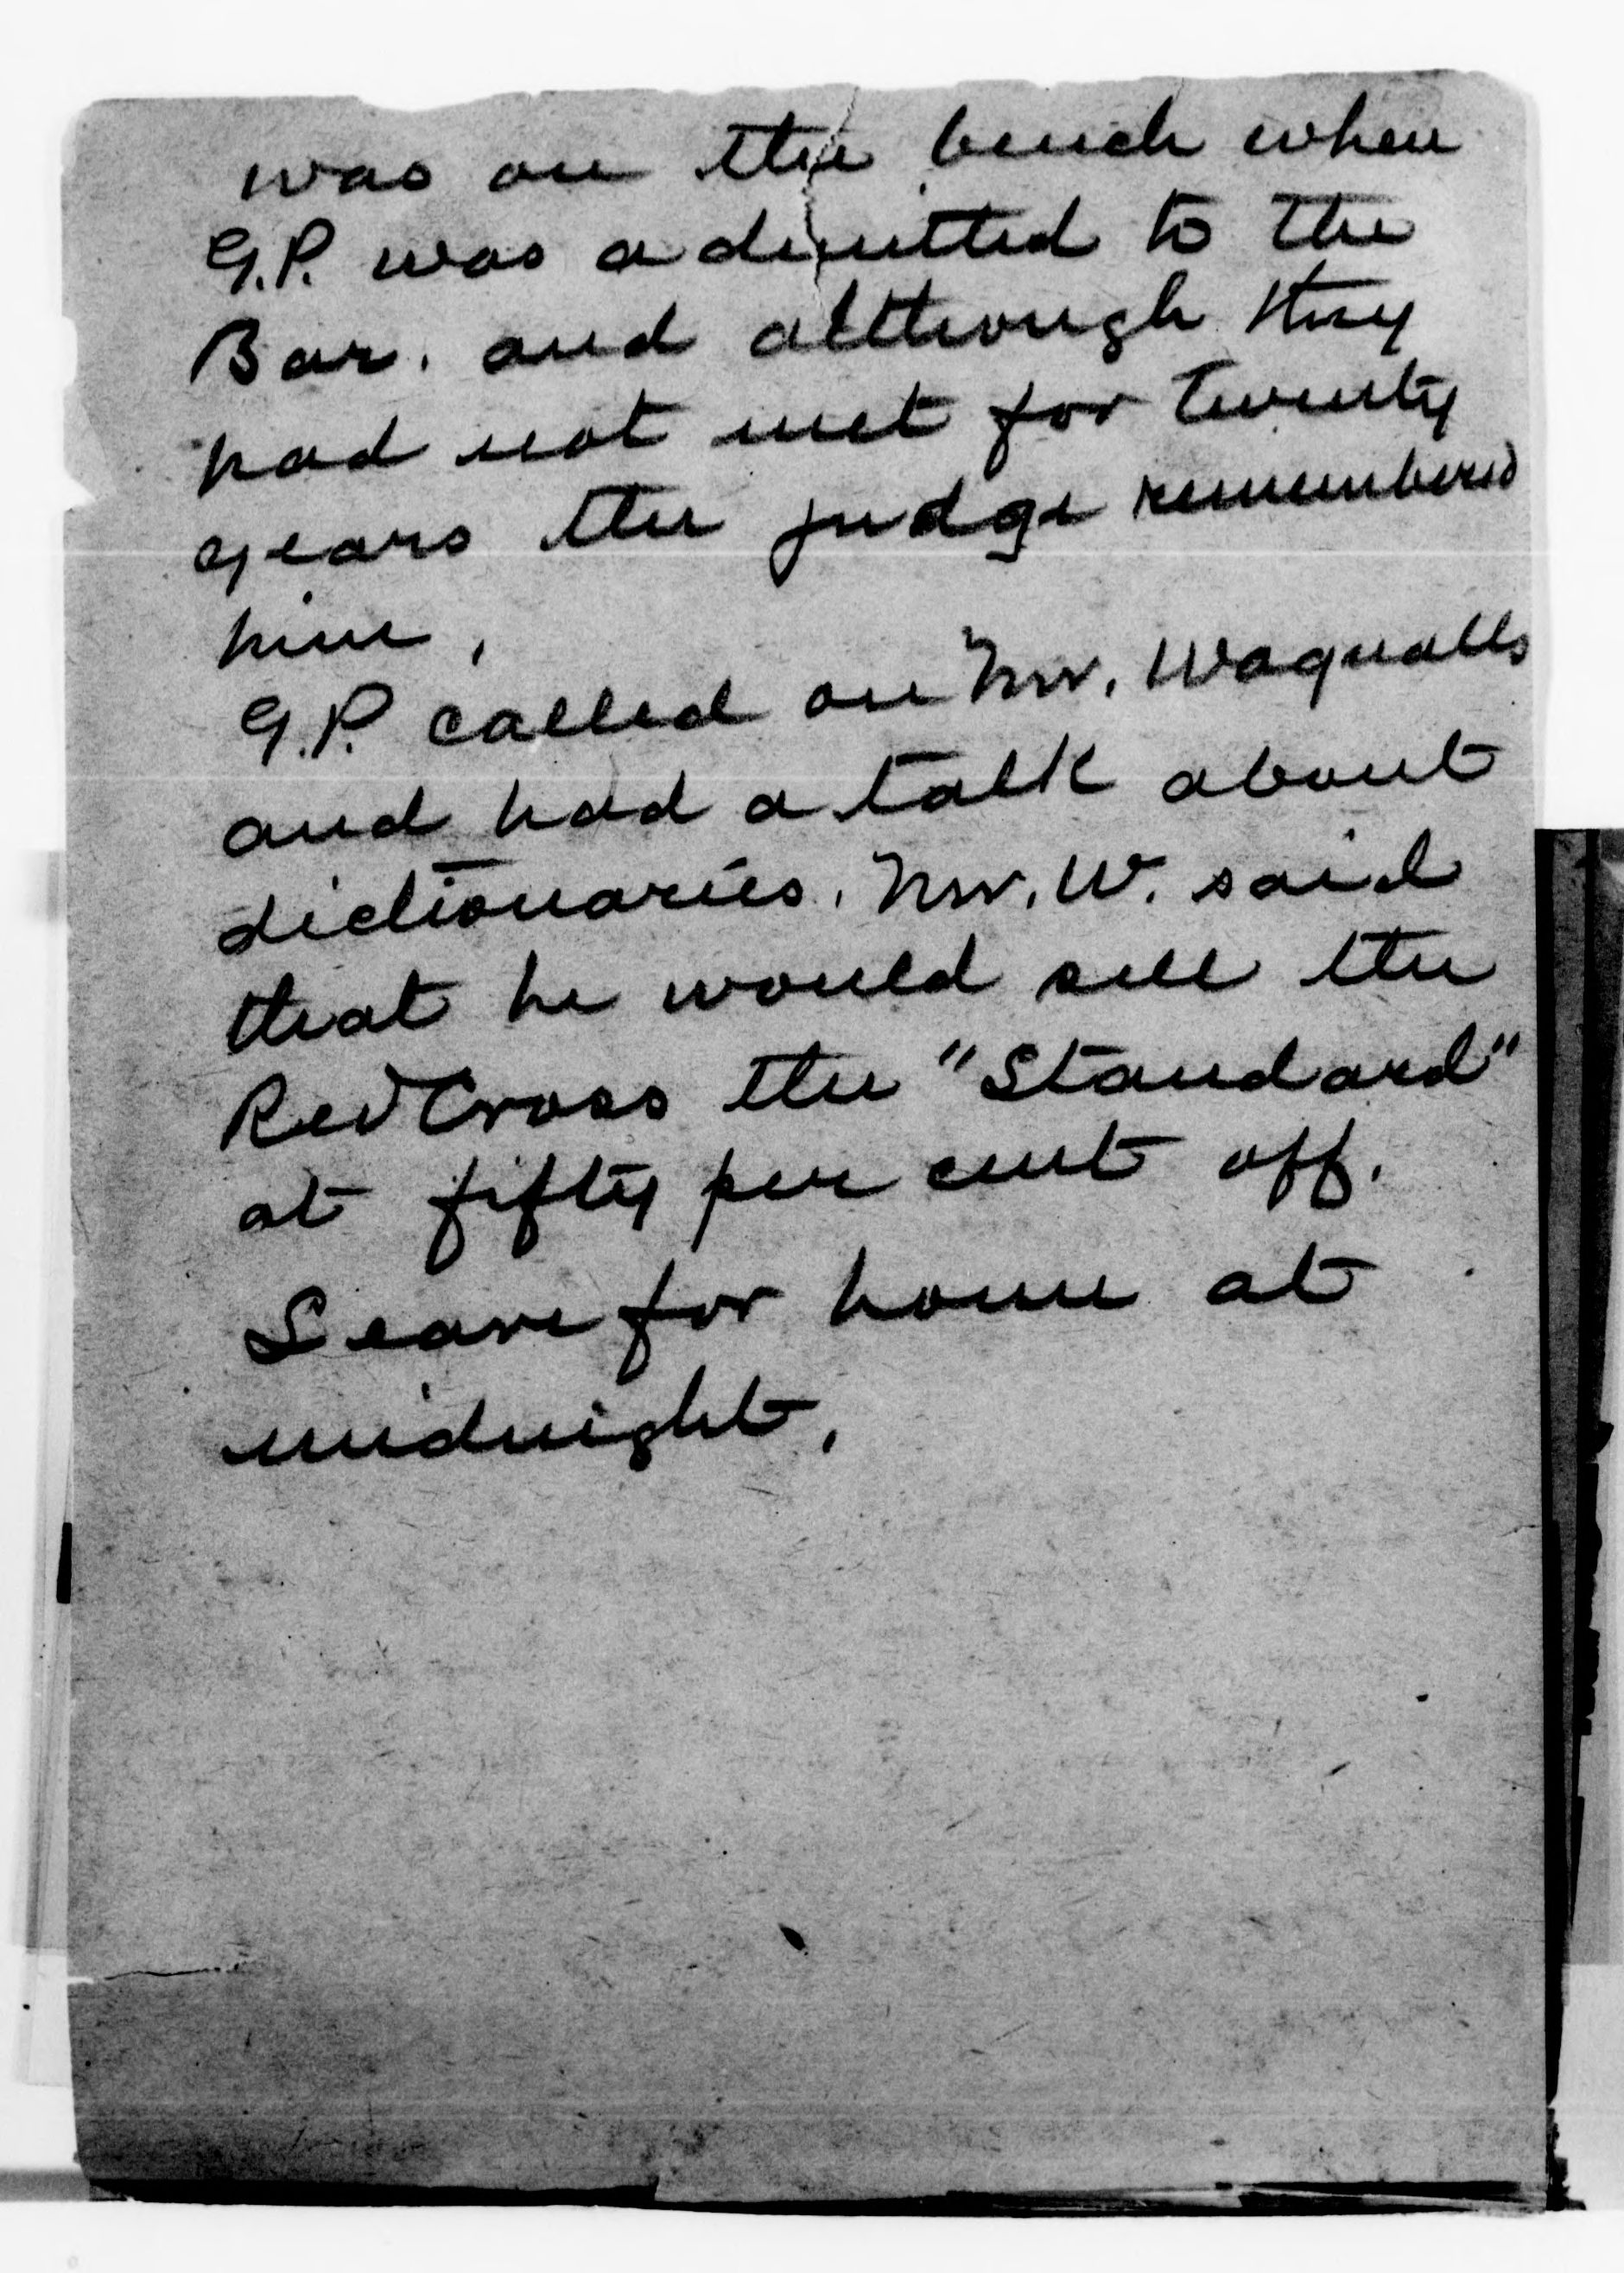 was on the bench when
G.P. was admitted to the
Bar. and although they
had not met for twenty
years the judge remembered
him.
G.P. called on Mr. Wagnalls
and had a talk about
dictionaries. Mr. W. said
that he would sell the
Red Cross the "Standard"
at fifty per cent off.
Leave for home at
midnight.